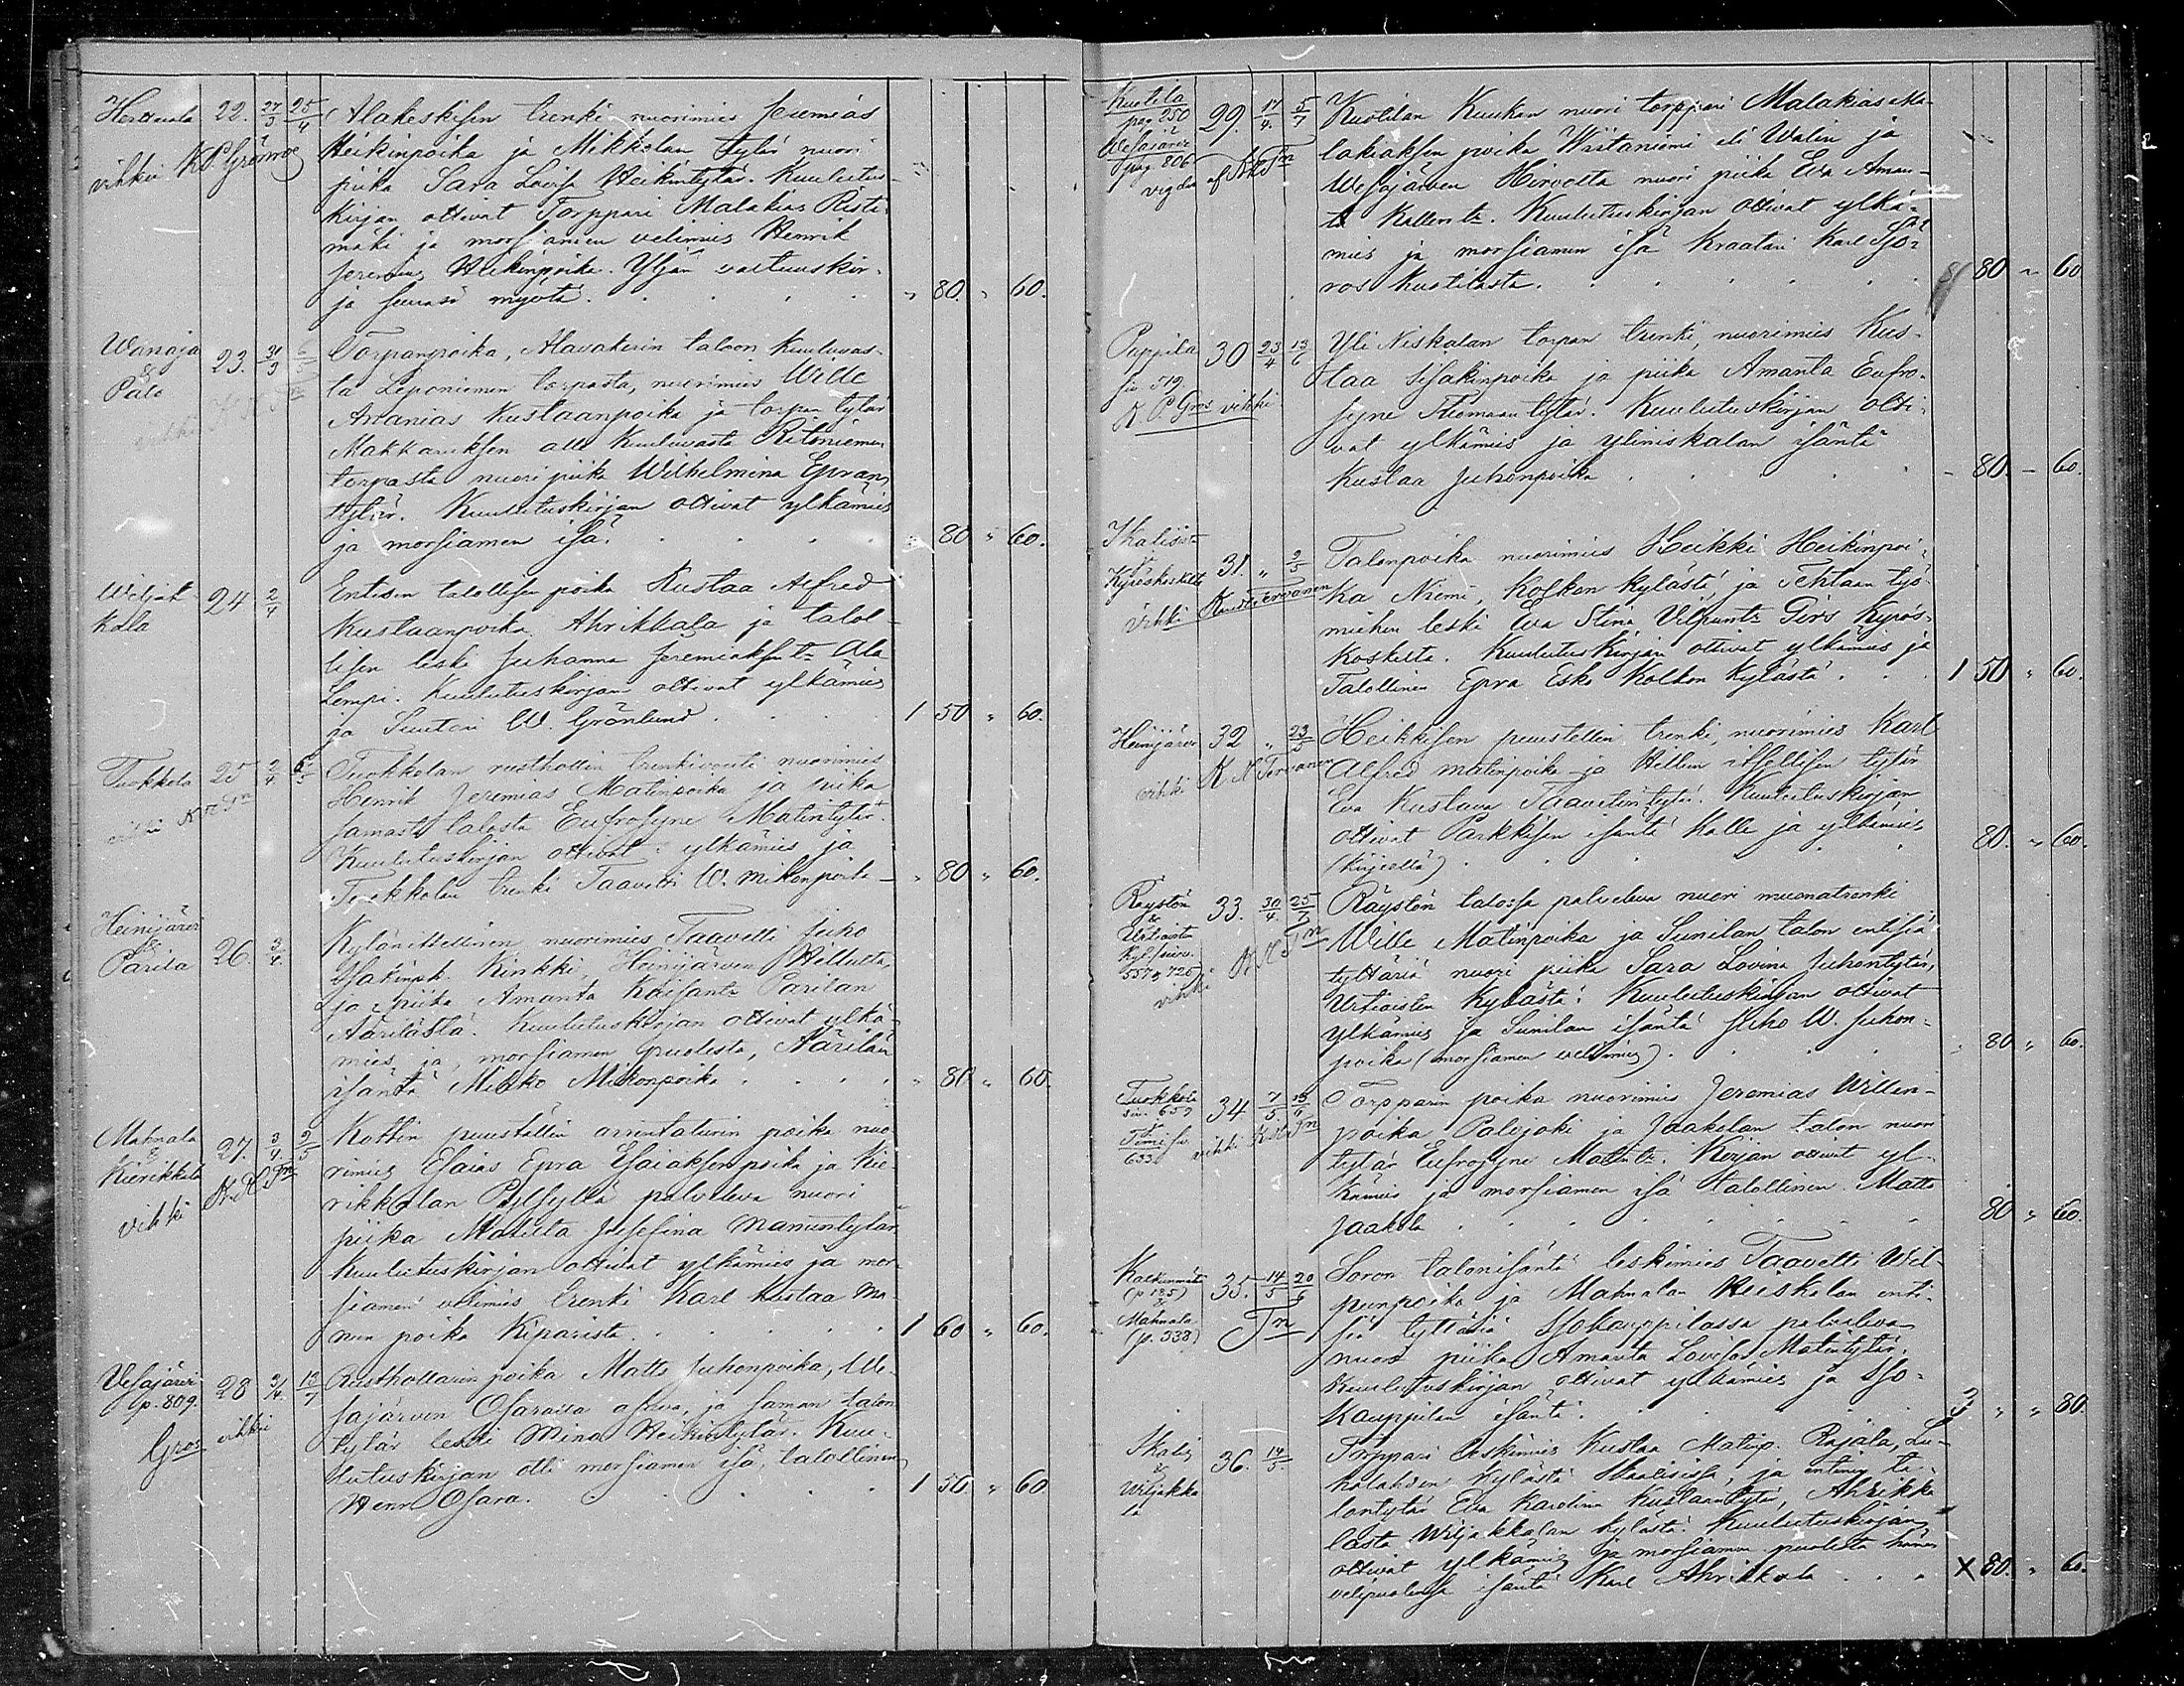 Herttuala 22. 27/3 25/4 Alakeskisen trenki nuorimies Jeremias
vihki K.P. Grönroos Heikinpoika ja Mikkolan tytär nuori
piika Sara Lovisa Heikintytär. Kuulutus-
kirjan ottivat Torppari Malakias Risti-
mäki ja morsiamen velimies Henrik
Jeremias Heikinpoika. Yljän vastuuskir-
ja seurasi myötä. " 80. " 60.
Wanaja & Palo 23. 31/3 6/5 Torpanpoika, Alavakerin taloon kuuluvas-
ta Leponiemen torpasta, nuorimies Wille
Ananias Kustaanpoika ja torpan tytär
Makkariksen alle kuuluvasta Ritoniemen
torpasta nuori piika Wilhelmina Epran
tytär. Kuulutuskirjan ottivat ylkämies
ja morsiamen isä. " 80 " 60.
Wiljak-
kala 24 2/4 Entisen talollisen poika Kustaa Alfred
Kustaanpoika Ahrikkala ja talol-
lisen leski Juhanna Jeremiaksen tr Ala-
Lempi. Kuulutuskirjan ottivat ylkämies
ja Suntari W. Grönlund. 1 50 " 60.
Tuokkola 25 2/4 6/5 Tuokkolan rusthollin trenkivouti nuorimies
vihki K.N. Tn Henrik Jeremias Matinpoika ja piika
samasta talosta Eufrosyne Matintytär.
Kuulutuskirjan ottivat: ylkämies ja
Tuokkolan trenki Taavetti W. Mikonpoika " 80 " 60.
Heinijärvi & Parila 26. 3/4. Kylänitsellinen nuorimies Taavetti Juho
Isakinpk. Kinkki, Heinijärven Hillusta,
ja piika Amanta Kaisantr Parilan
Äärilästä. Kuulutuskirjan ottivat ylkä-
mies ja, morsiamen puolesta, Äärilän
isäntä Mikko Mikonpoika. " 80 " 60.
Mahnala & Kierikkala 27. 3/4. 9/5 Kottin puustellin arentaturin poika nuo-
vihki K.N. Tn rimies Esaias Epra Esaiaksenpoika ja Kie-
rikkalan Pyssyllä palveleva nuori
piika Matilta Josefina Manuntytär.
Kuulutuskirjan ottivat ylkämies ja mor-
siamen velimies trenki Karl Kustaa Ma-
nun poika Kiparista. 1 60 " 60.
Vesajärvi p. 809. 28 3/4. 13/7 Rusthollarin poika Matts Juhonpoika, We-
Gros vihki sajärven Osaralla asuva, ja saman talon
tytär leski Mina Heikintytär. Kuu-
lutuskirjan otti morsiamen isä, talollinen
Henr. Osara. 1 50 " 60
Kuotila pag 250 & Wesajärvi pag. 806 29. 17/4. 5/7 Kuotilan Kuukan nuori torppari Malakias Ma-
vigda af Tn lakiaksen poika Wiitaniemi eli Walin ja
Wesajärven Hirvolta nuori piika Eva Aman-
ta Kallen tr. Kuulutuskirjan ottivat ylkä-
mies ja morsiamen isä Kraatari Karl Sjö-
ros Kuotilasta. 80 " 60
Pappila siv 519 30 23/4 13/6 Yli Niskalan torpan trenki, nuorimies Kus-
K. P. Gros vihki taa Isakinpoika ja piika Amanta Eufro-
syne Tuomaantytär. Kuulutuskirjan otti-
vat ylkämies ja yliniskalan isäntä
Kustaa Juhonpoika. - 80. - 60.
Ikalisista & Kyröskoskelta 31. " 9/5 Talonpoika nuorimies Heikki Heikinpoi-
vihki K.N. Tervonen ka Niemi, Kolkon kylästä, ja Tehtaan työ-
miehen leski Eva Stina Vilpuntr Girs Kyrös-
koskelta. Kuulutuskirjan ottivat ylkämies ja
Talollinen Epra Esko Kolkon kylästä. 1 50 " 60.
Heinijärvi 32 " 23/5 Heikkisen puustellin trenki, nuorimies Karl
vihki K. N. Tervonen Alfred Matinpoika ja Hillun itsellisen tytär
Eva Kustava Taavetintytär. Kuulutuskirjan
ottivat Parkkisen isäntä Kalle ja ylkämies
(kirjeellä) 80. " 60.
Räystön & Urtiaista kyl. sivu. 557 & 725 33. 30/4. 25/7 Räystön talossa palveleva nuori muonatrenki
vihki K. N. Tn Wille Matinpoika ja Sunilan talon entisiä
tyttäriä nuori piika Sara Lovina Juhontytär,
Urtiaisten kylästä. Kuulutuskirjan ottivat
ylkämies ja Sunilan isäntä Juho W. Juhon-
poika (morsiamen velimies). " 80 " 60.
Tuokkola siv. 659 & Timi s. 633 34 7/5 Torpparin poika nuorimies Jeremias Willen-
vihki Tn poika Palojoki ja Jaakolan talon nuori
tytär Eufrosyne Matintr. Kirjan ottivat yl-
kämies ja morsiamen isä talollinen Matts
Jaakola 80 " 60.
Kalkunmäki (p 185) & Mahnala (p. 338) 35. 14/5 20/6 Soron talonisäntä leskimies Taavetti Wil-
Tn punpoika ja Mahnalan Heiskalan enti-
siä tyttäriä Isokauppilassa palveleva
nuori piika Amanta Lovisa Matintytär.
Kuulutuskirjan ottivat ylkämies ja Iso-
kauppilan isäntä. 3 " " 80.
Ikalis & Wiljakka-
la 36. 14/5. Torppari leskimies Kustaa Matinp. Rajala, Lu-
halahden kylästä Ikaalisissa, ja entinen ta-
lontytär Eva Karolina Kustaantytär, Ahrikka-
lasta Wiljakkalan kylästä. Kuulutuskirjan
ottivat ylkämies ja morsiamen puolesta hänen
velipuolensa isäntä Karl Ahrikkala X 80. " 60.